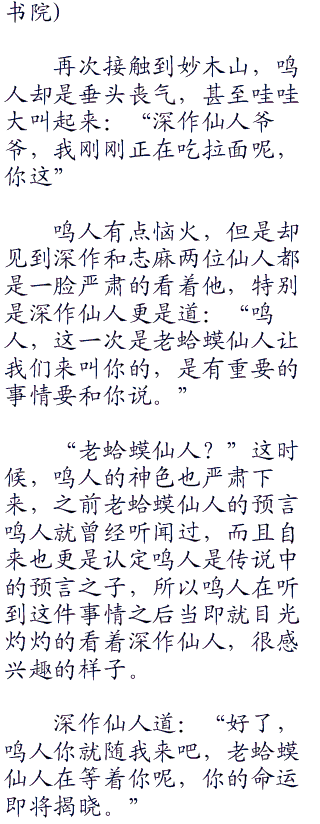 书院)
再次接触到妙木山，鸣
人却是垂头丧气，甚至哇哇
大叫起来：“深作仙人爷
爷，我刚刚正在吃拉面呢，
你这”
鸣人有点恼火，但是却
见到深作和志麻两位仙人都
是一脸严肃的看着他，特别
是深作仙人更是道：“鸣
人，这一次是老蛤蟆仙人让
我们来叫你的，是有重要的
事情要和你说。”
“老蛤蟆仙人？”这时
候，鸣人的神色也严肃下
来，之前老蛤蟆仙人的预言
鸣人就曾经听闻过，而且自
来也更是认定鸣人是传说中
的预言之子，所以鸣人在听
到这件事情之后当即就目光
灼灼的看着深作仙人，很感
兴趣的样子。
深作仙人道：“好了，
鸣人你就随我来吧，老蛤蟆
仙人在等着你呢，你的命运
即将揭晓。”